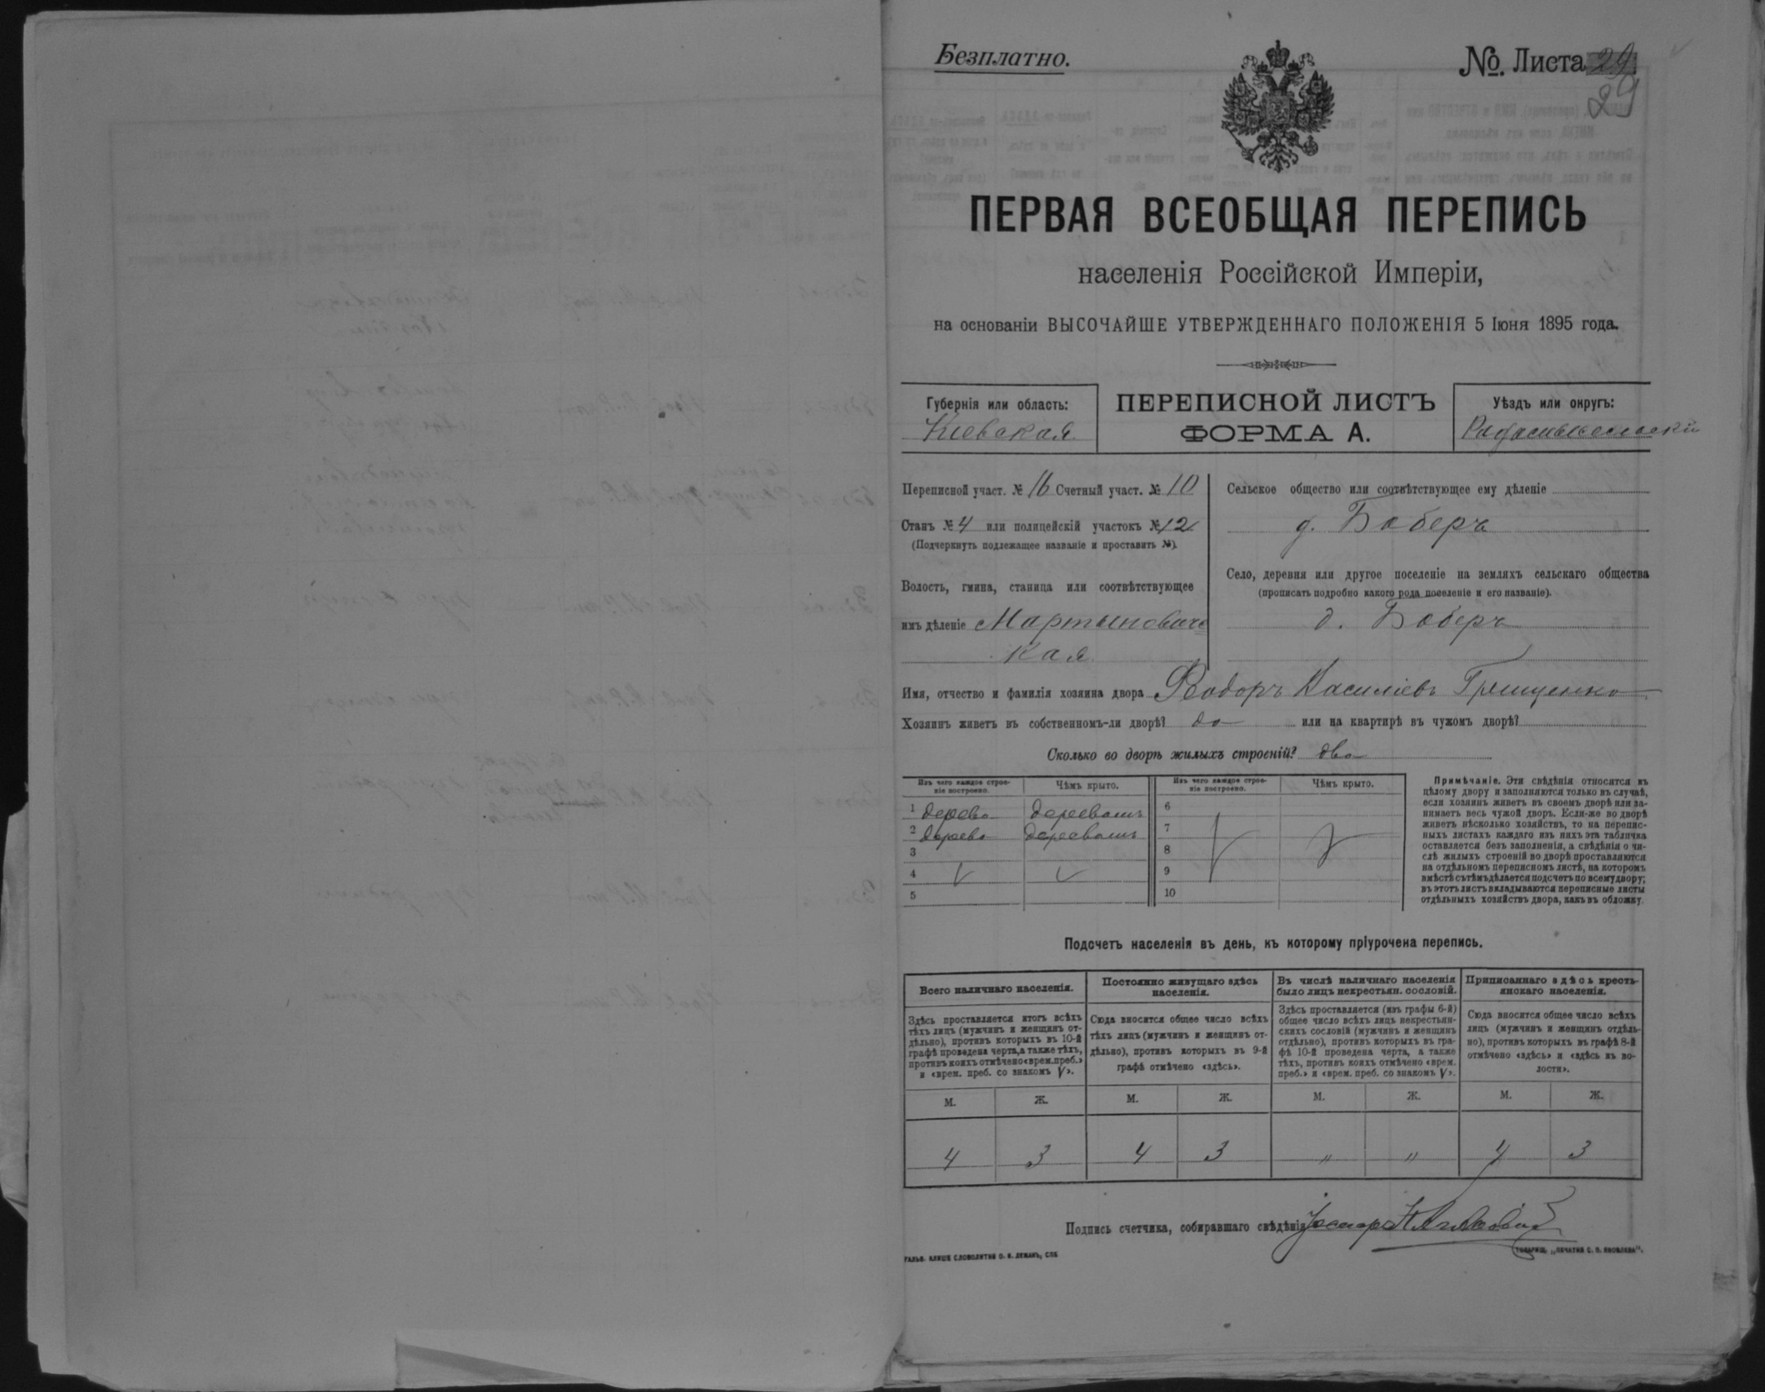 Безплатно.
№ Листа 29
29
ПЕРВАЯ ВСЕОБЩАЯ ПЕРЕПИСЬ
населенія Россійской Имперіи,
на основаніи ВЫСОЧАЙШЕ УТВЕРЖДЕННАГО ПОЛОЖЕНІЯ 5 Іюня 1895 года.
Губернія или область:
Кіевская
ПЕРЕПИСНОЙ ЛИСТЪ
ФОРМА А.
Уѣздъ или округъ:
Радомысльскій
Переписной участ. № 16 Счетный участ. № 10
Станъ № 4 или полицейскій участокъ № 12
(Подчеркнуть подлежащее названіе и проставить №).
Волость, гмина, станица или соотвѣтствующее
имъ дѣленіе Мартыновичс
кая
Сельское общество или соотвѣтствующее ему дѣленіе
д. Боберъ
Село, деревня или другое поселеніе на земляхъ сельскаго общества
(прописать подробно какого рода поселеніе и его названіе).
д. Боберъ
Имя, отчество и фамилія хозяина двора Ѳедоръ Василіевъ Грищенко
Хозяинъ живетъ въ собственномъ-ли дворѣ? да или на квартирѣ въ чужомъ дворѣ?
Сколько во дворѣ жилыхъ строеній? два
Изъ чего каждое строе-
ніе построено.
Чѣмъ крыто.
Изъ чего каждое строе-
ніе построено.
Чѣмъ крыто.
1 дерево деревомъ 6
2 дерево деревомъ 7
3 8
4 9
5 10
Примѣчаніе. Эти свѣдѣнія относятся къ
цѣлому двору и заполняются только въ случаѣ,
если хозяинъ живетъ въ своемъ дворѣ или за-
нимаетъ весь чужой дворъ. Если-же во дворѣ
живетъ нѣсколько хозяйствъ, то на перепис-
ныхъ листахъ каждаго изъ нихъ эта табличка
оставляется безъ заполненія, а свѣдѣнія о чи-
слѣ жилыхъ строеній во дворѣ проставляются
на отдѣльномъ переписномъ листѣ, на которомъ
вмѣстѣ съ тѣмъ дѣлается подсчетъ по всему двору;
въ этотъ листъ вкладываются переписные листы
отдѣльныхъ хозяйствъ двора, какъ въ обложку.
Подсчетъ населенія въ день, къ которому пріурочена перепись.
Всего наличнаго населенія.
Здѣсь проставляется итогъ всѣхъ
тѣхъ лицъ (мужчинъ и женщинъ от-
дѣльно), противъ которыхъ въ 10-й
графѣ проведена черта, а также тѣхъ,
противъ коихъ отмѣчено «врем. преб.»
и «врем. преб. со знакомъ V».
Постоянно живущаго здѣсь
населенія.
Сюда вносится общее число всѣхъ
тѣхъ лицъ (мужчинъ и женщинъ от-
дѣльно), противъ которыхъ въ 9-й
графѣ отмѣчено «здѣсь».
Въ числѣ наличнаго населенія
было лицъ некрестьян. сословій.
Здѣсь проставляется (изъ графы 6-й)
общее число всѣхъ лицъ некрестьян-
скихъ сословій (мужчинъ и женщинъ
отдѣльно), противъ которыхъ въ гра-
фѣ 10-й проведена черта, а также
тѣхъ, противъ коихъ отмѣчено «врем.
преб.» и «врем. преб. со знакомъ V».
Приписаннаго здѣсь кресть-
янскаго населенія.
Сюда вносится общее число всѣхъ
лицъ (мужчинъ и женщинъ отдѣль-
но), противъ которыхъ въ графѣ 8-й
отмѣчено «здѣсь» и «здѣсь въ во-
лости».
М. Ж. М. Ж. М. Ж. М. Ж.
4 3 4 3 " " 4 3
Подпись счетчика, собиравшаго свѣдѣнія